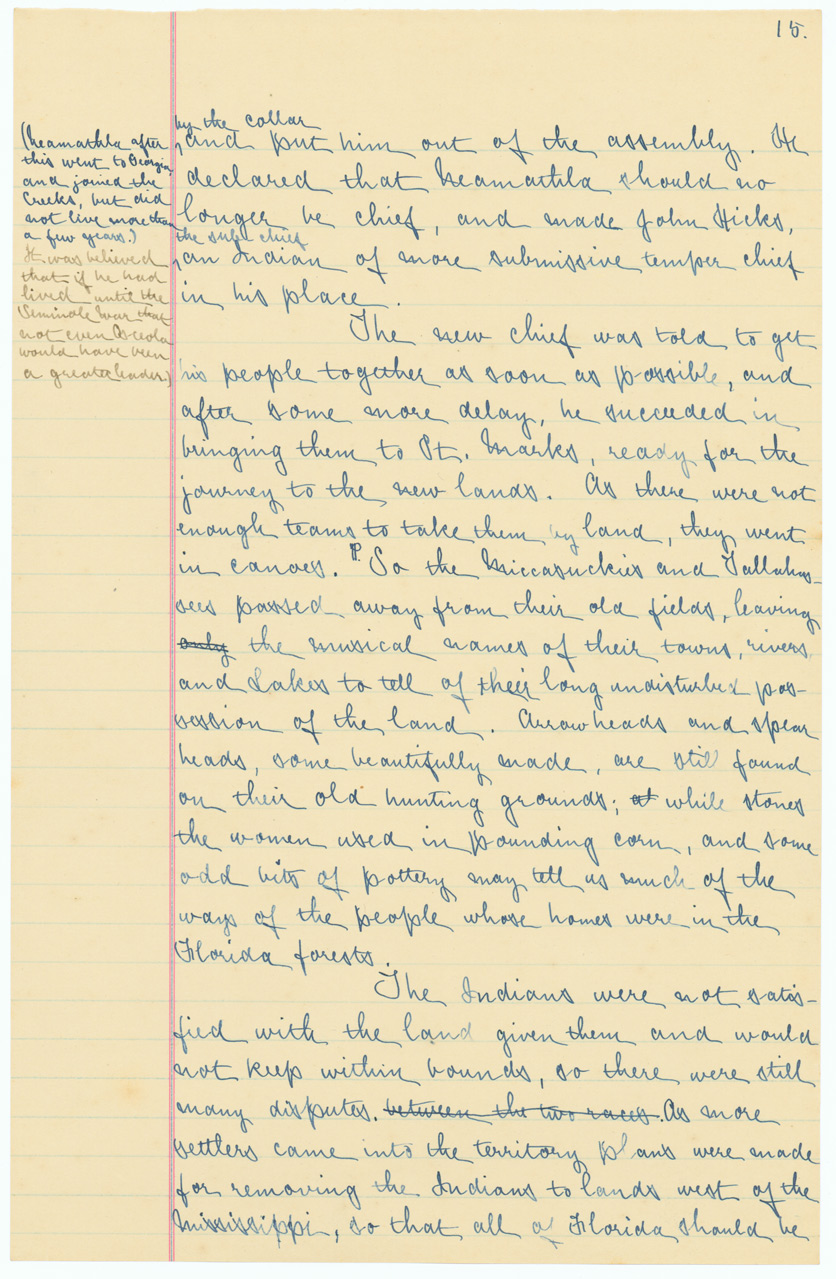 15.
(Neamathla after
this went to Georgia
and joined the
Creeks, but did
not live more than
a few years.)
It was believed
that if he had
lived until the
Seminole War that
not even Osceola
would have been
a greater leader.)
by the collar
and put him out of the assembly. He
declared that Neamathla should no
longer be chief, and made John Hicks,
the sub chief
an Indian of more submissive temper chief
in his place.
The new chief was told to get
his people together as soon as possible, and
after some more delay, he succeeded in
bringing them to St. Marks, ready for the
journey to the new lands. As there were not
enough teams to take them by land, they went
in canoes. P. So the Miccasuckies and Tallahas-
sees passed away from their old fields, leaving
only the musical names of their towns, rivers
and Lakes to tell of their long undisturbed pos-
session of the land. Arrowheads and spear
heads, some beautifully made, are still found
on their old hunting grounds; at while stones
the women used in pounding corn, and some
odd bits of pottery may tell us much of the
ways of the people whose homes were in the
Florida forests.
The Indians were not satis-
fied with the land given them and would
not keep within bounds, so there were still
many disputes. between the two races. As more
settlers came into the territory plans were made
for removing the Indians to lands west of the
Mississippi, so that all of Florida should be